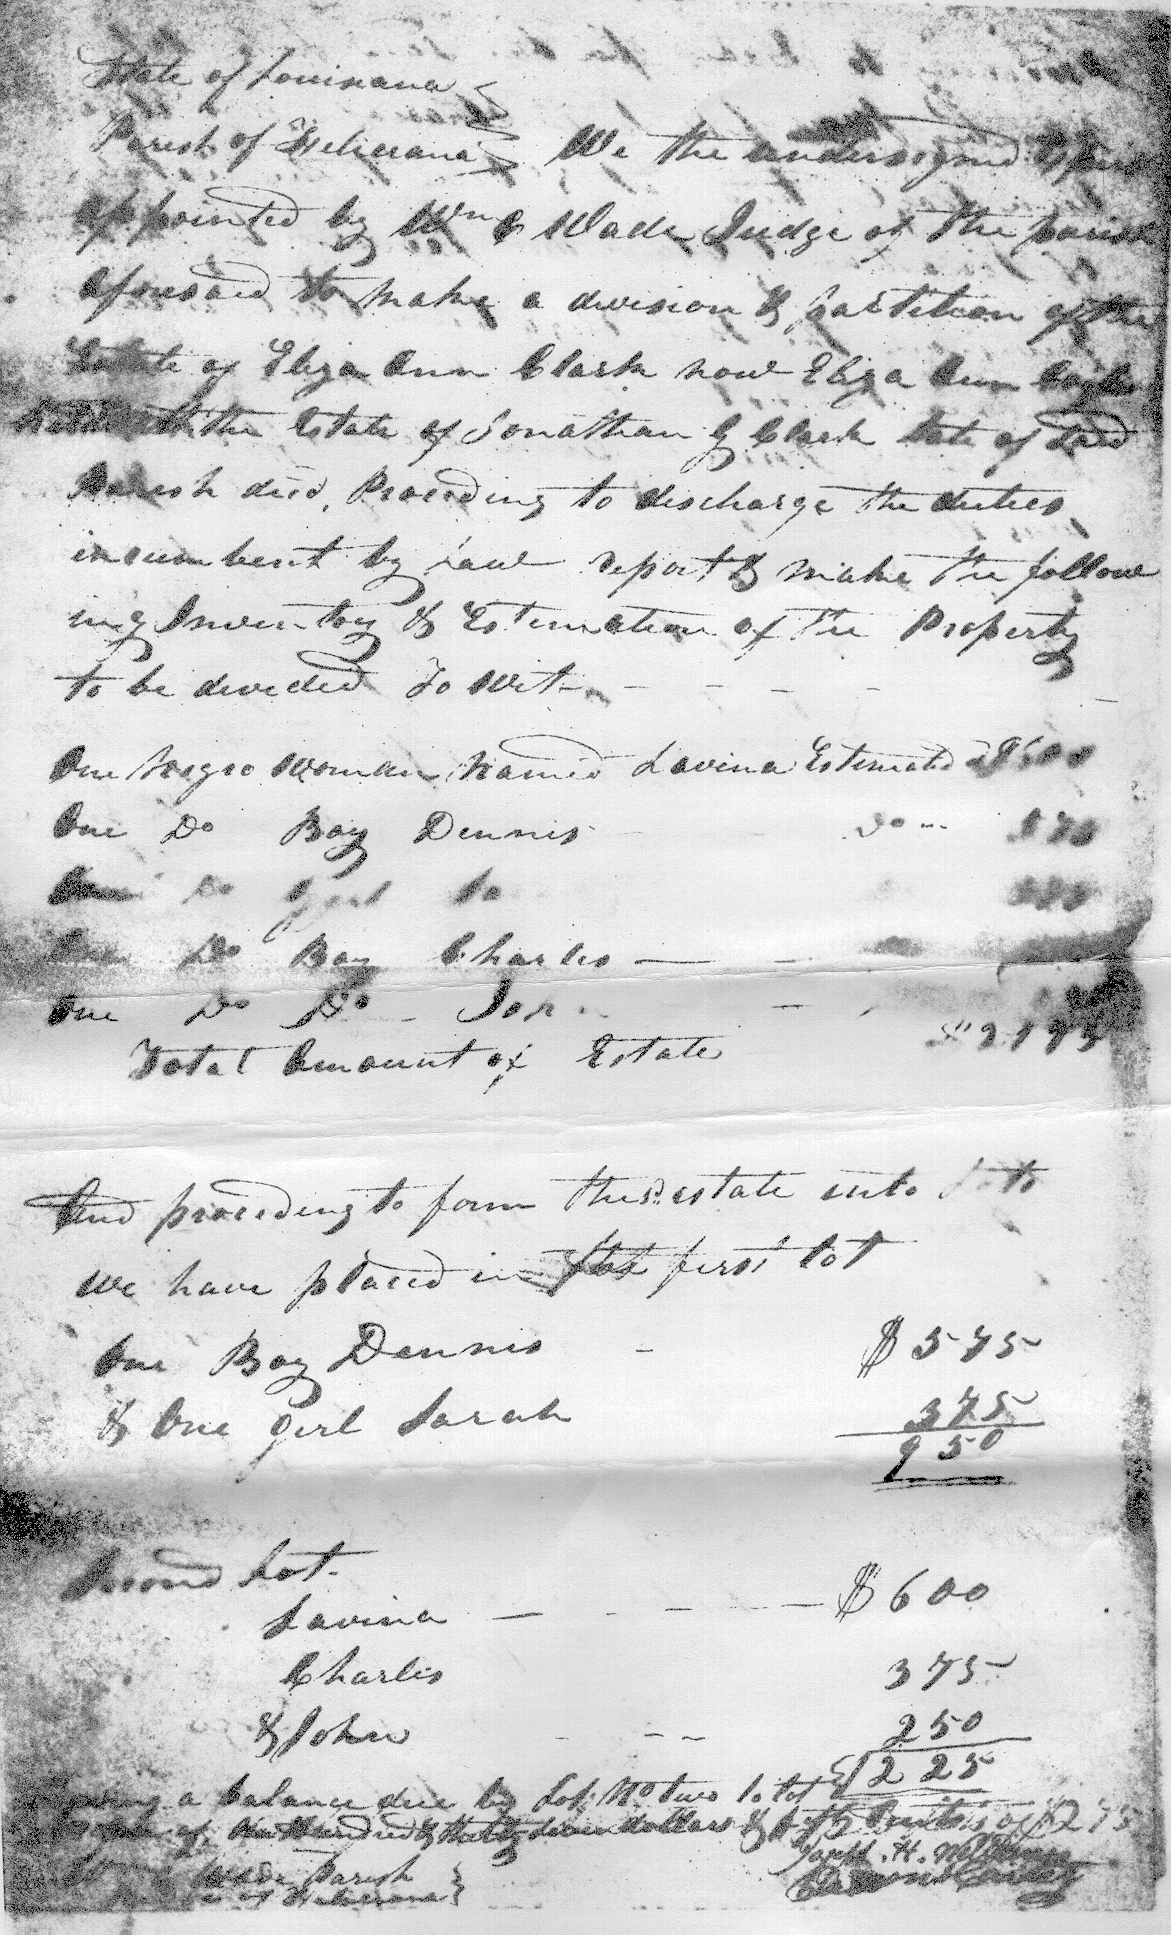 State of Louisiana
Parish of Feliciana We the undersigned
appointed by Wm C Wade Judge of the parish
aforesaid to make a division & partition of the
Estate of Eliza Ann Clark now Eliza Ann
the Estate of Jonathan G Clark late of said
Parish decd, Proceeding to discharge the duties
incumbent by Law report & make the follow
ing Inventory & Estimation of the Property
to be divided To Wit
One Negro Woman Named Lavina Estimated at $600
One Do Boy Dennis Do
One Do Girl Sa
One Do Boy Charles
One Do Do John
Total Amount of Estate $2175
And proceeding to form the sd. estate into Lots
We have placed in the first Lot
One Boy Dennis $575
& One girl Sarah 375
950
Second Lot.
Lavina $600
Charles 375
& John 250
$1225
a balance due by Lot No two to Lot
of One Hundred & thirty seven dollars & fifty Cents of $275
H. Williams
Wade Parish
of Feliciana